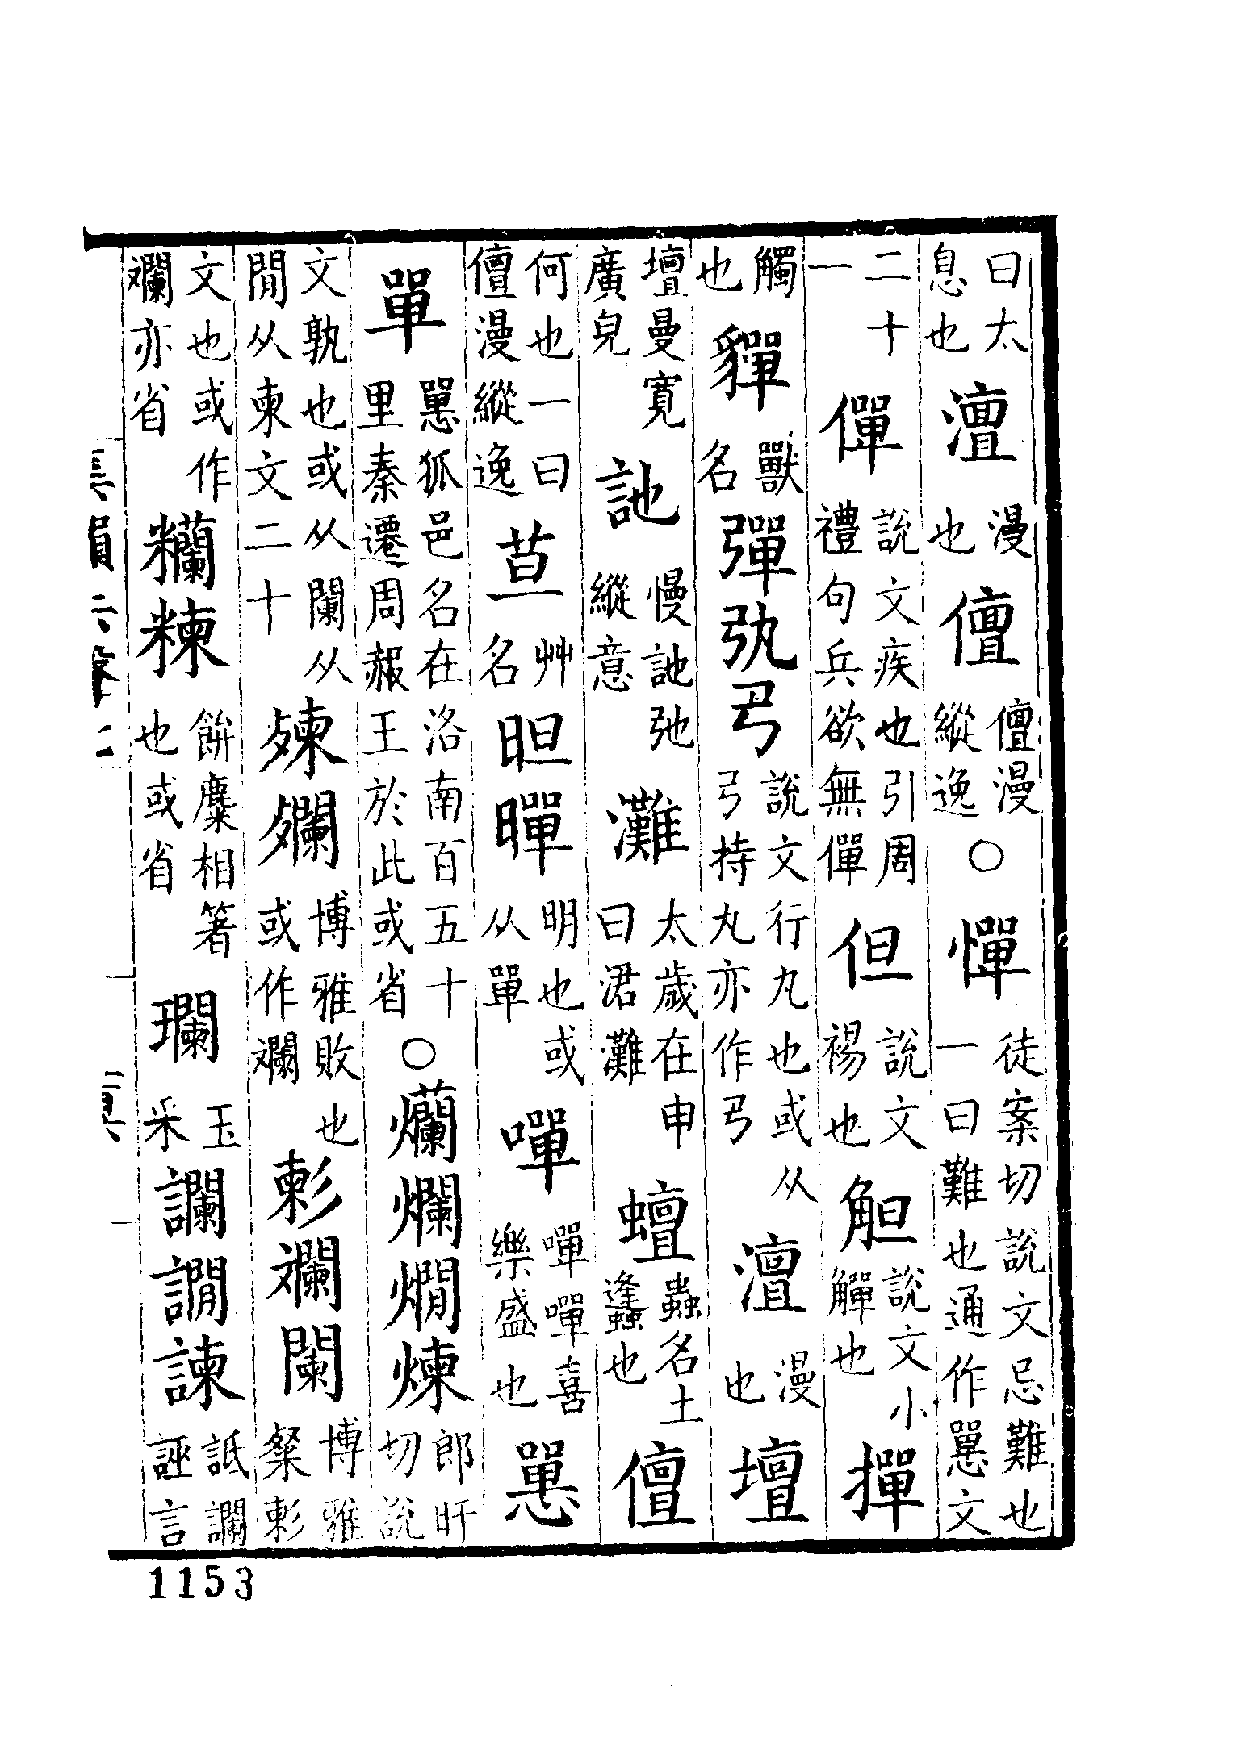 曰太息也 澶 漫也 儃 儃漫縱逸 ○ 憚 徒案切說文忌難也一曰難也通作㦴文
二十一 僤 說文疾也引周禮句兵欲無僤 但 說文裼也 觛 說文小觶也 撣
觸也 貚 獸名 彈𢎫弓 說文行丸也或从弓持丸亦作弓 澶 漫也 壇
壇曼寬廣皃 訑 慢訑訑縱意 灘 太歲在申曰涒灘 蟺 蟲名土螽也 儃
何也一曰儃漫縱逸 艸名 䀇暺 明也或从單 嘽 嘽嘽喜樂盛也 㦴
單 㦴狐邑名在洛南百五十里秦遷周赧王於此或省 ○ 爤爛燗煉 郎旰切說
文孰也或从闌从閒从柬文二十 㱫㱮 博雅敗也或作斕 斕闌 博雅粲
文也或作斕亦省 糷𥻂 餅𪎭相箸也或省 瓓 玉采 讕譋諫 詆讕誣言
集韻 去聲上
1153